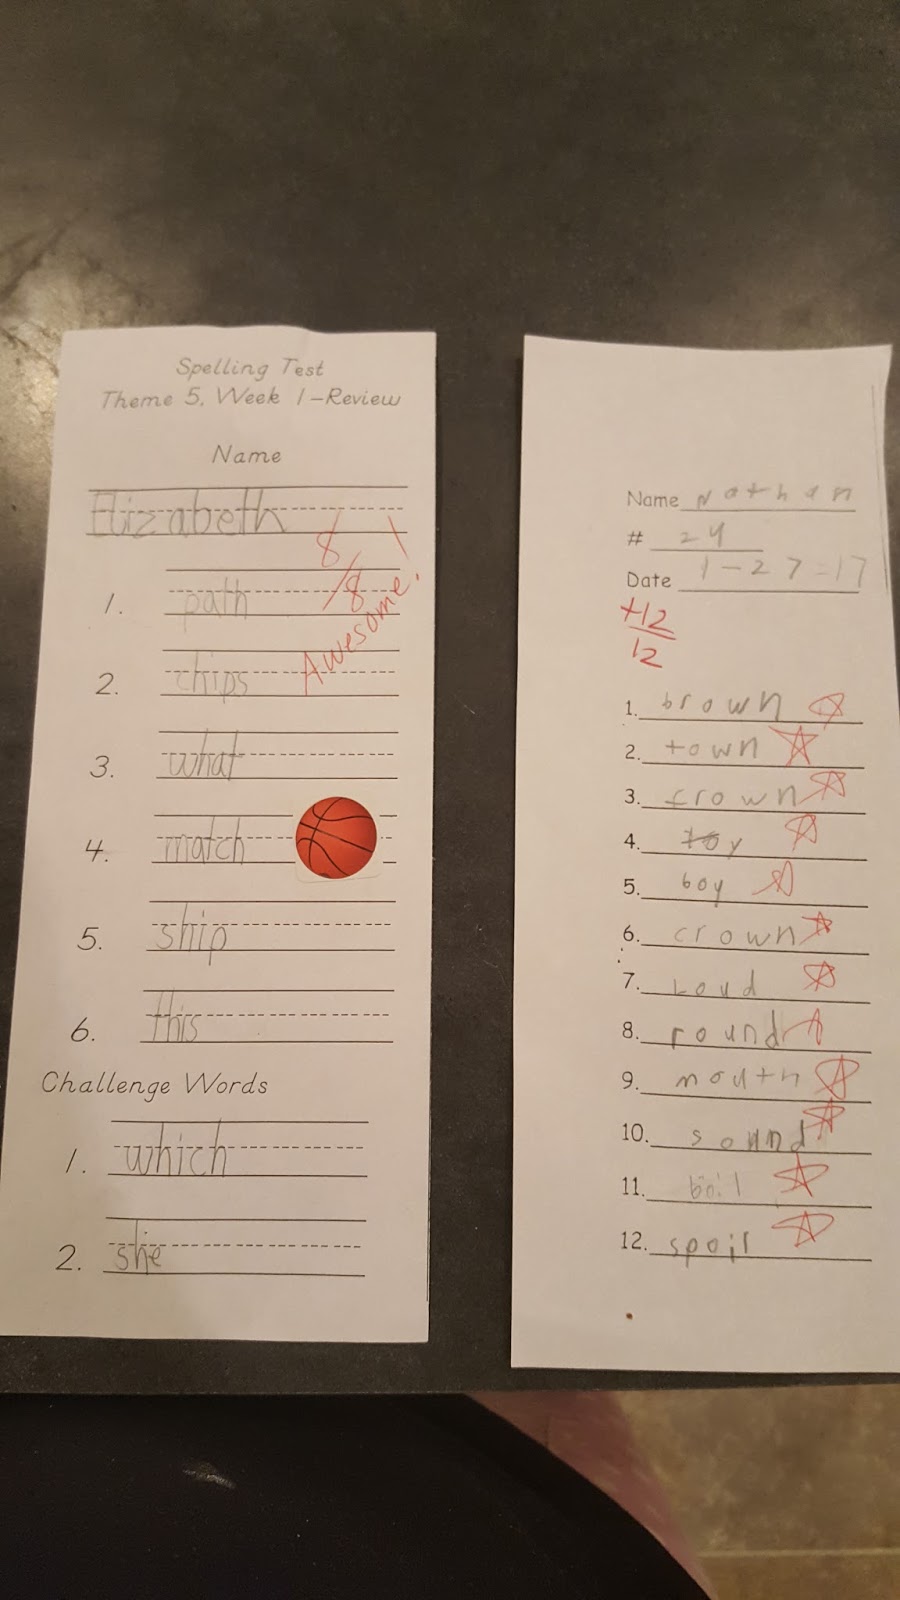 Spelling Test
Theme 5, Week 1-Review
Name
Elizabeth
8/8
Awesome!
1. path
2. chips
3. what
4. match
5. ship
6. this
Challenge Words
1. which
2. she
Name Nathan
# 24
Date 1-27-17
+12
12
1. brown
2. town
3. frown
4. toy
5. boy
6. crown
7. Loud
8. round
9. mouth
10. sound
11. boil
12. spoil